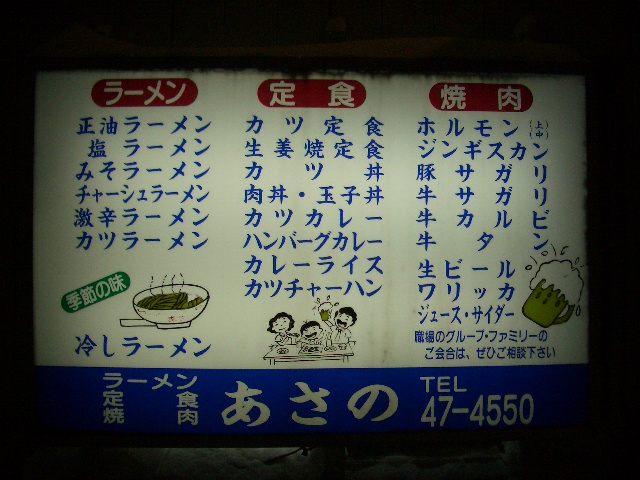 ラーメン
正油ラーメン
塩ラーメン
みそラーメン
チャーシュラーメン
激辛ラーメン
カツラーメン
季節の味
冷しラーメン
定食
カツ定食
生姜焼定食
カツ丼
肉丼・玉子丼
カツカレー
ハンバーグカレー
カレーライス
カツチャーハン
焼肉
ホルモン(上中)
ジンギスカン
豚サガリ
牛サガリ
牛カルビ
牛タン
生ビール
ワリッカ
ジュース・サイダー
職場のグループ・ファミリーの
ご会合は、ぜひご相談下さい
ラーメン
定食
焼肉
あさの
TEL
47-4550